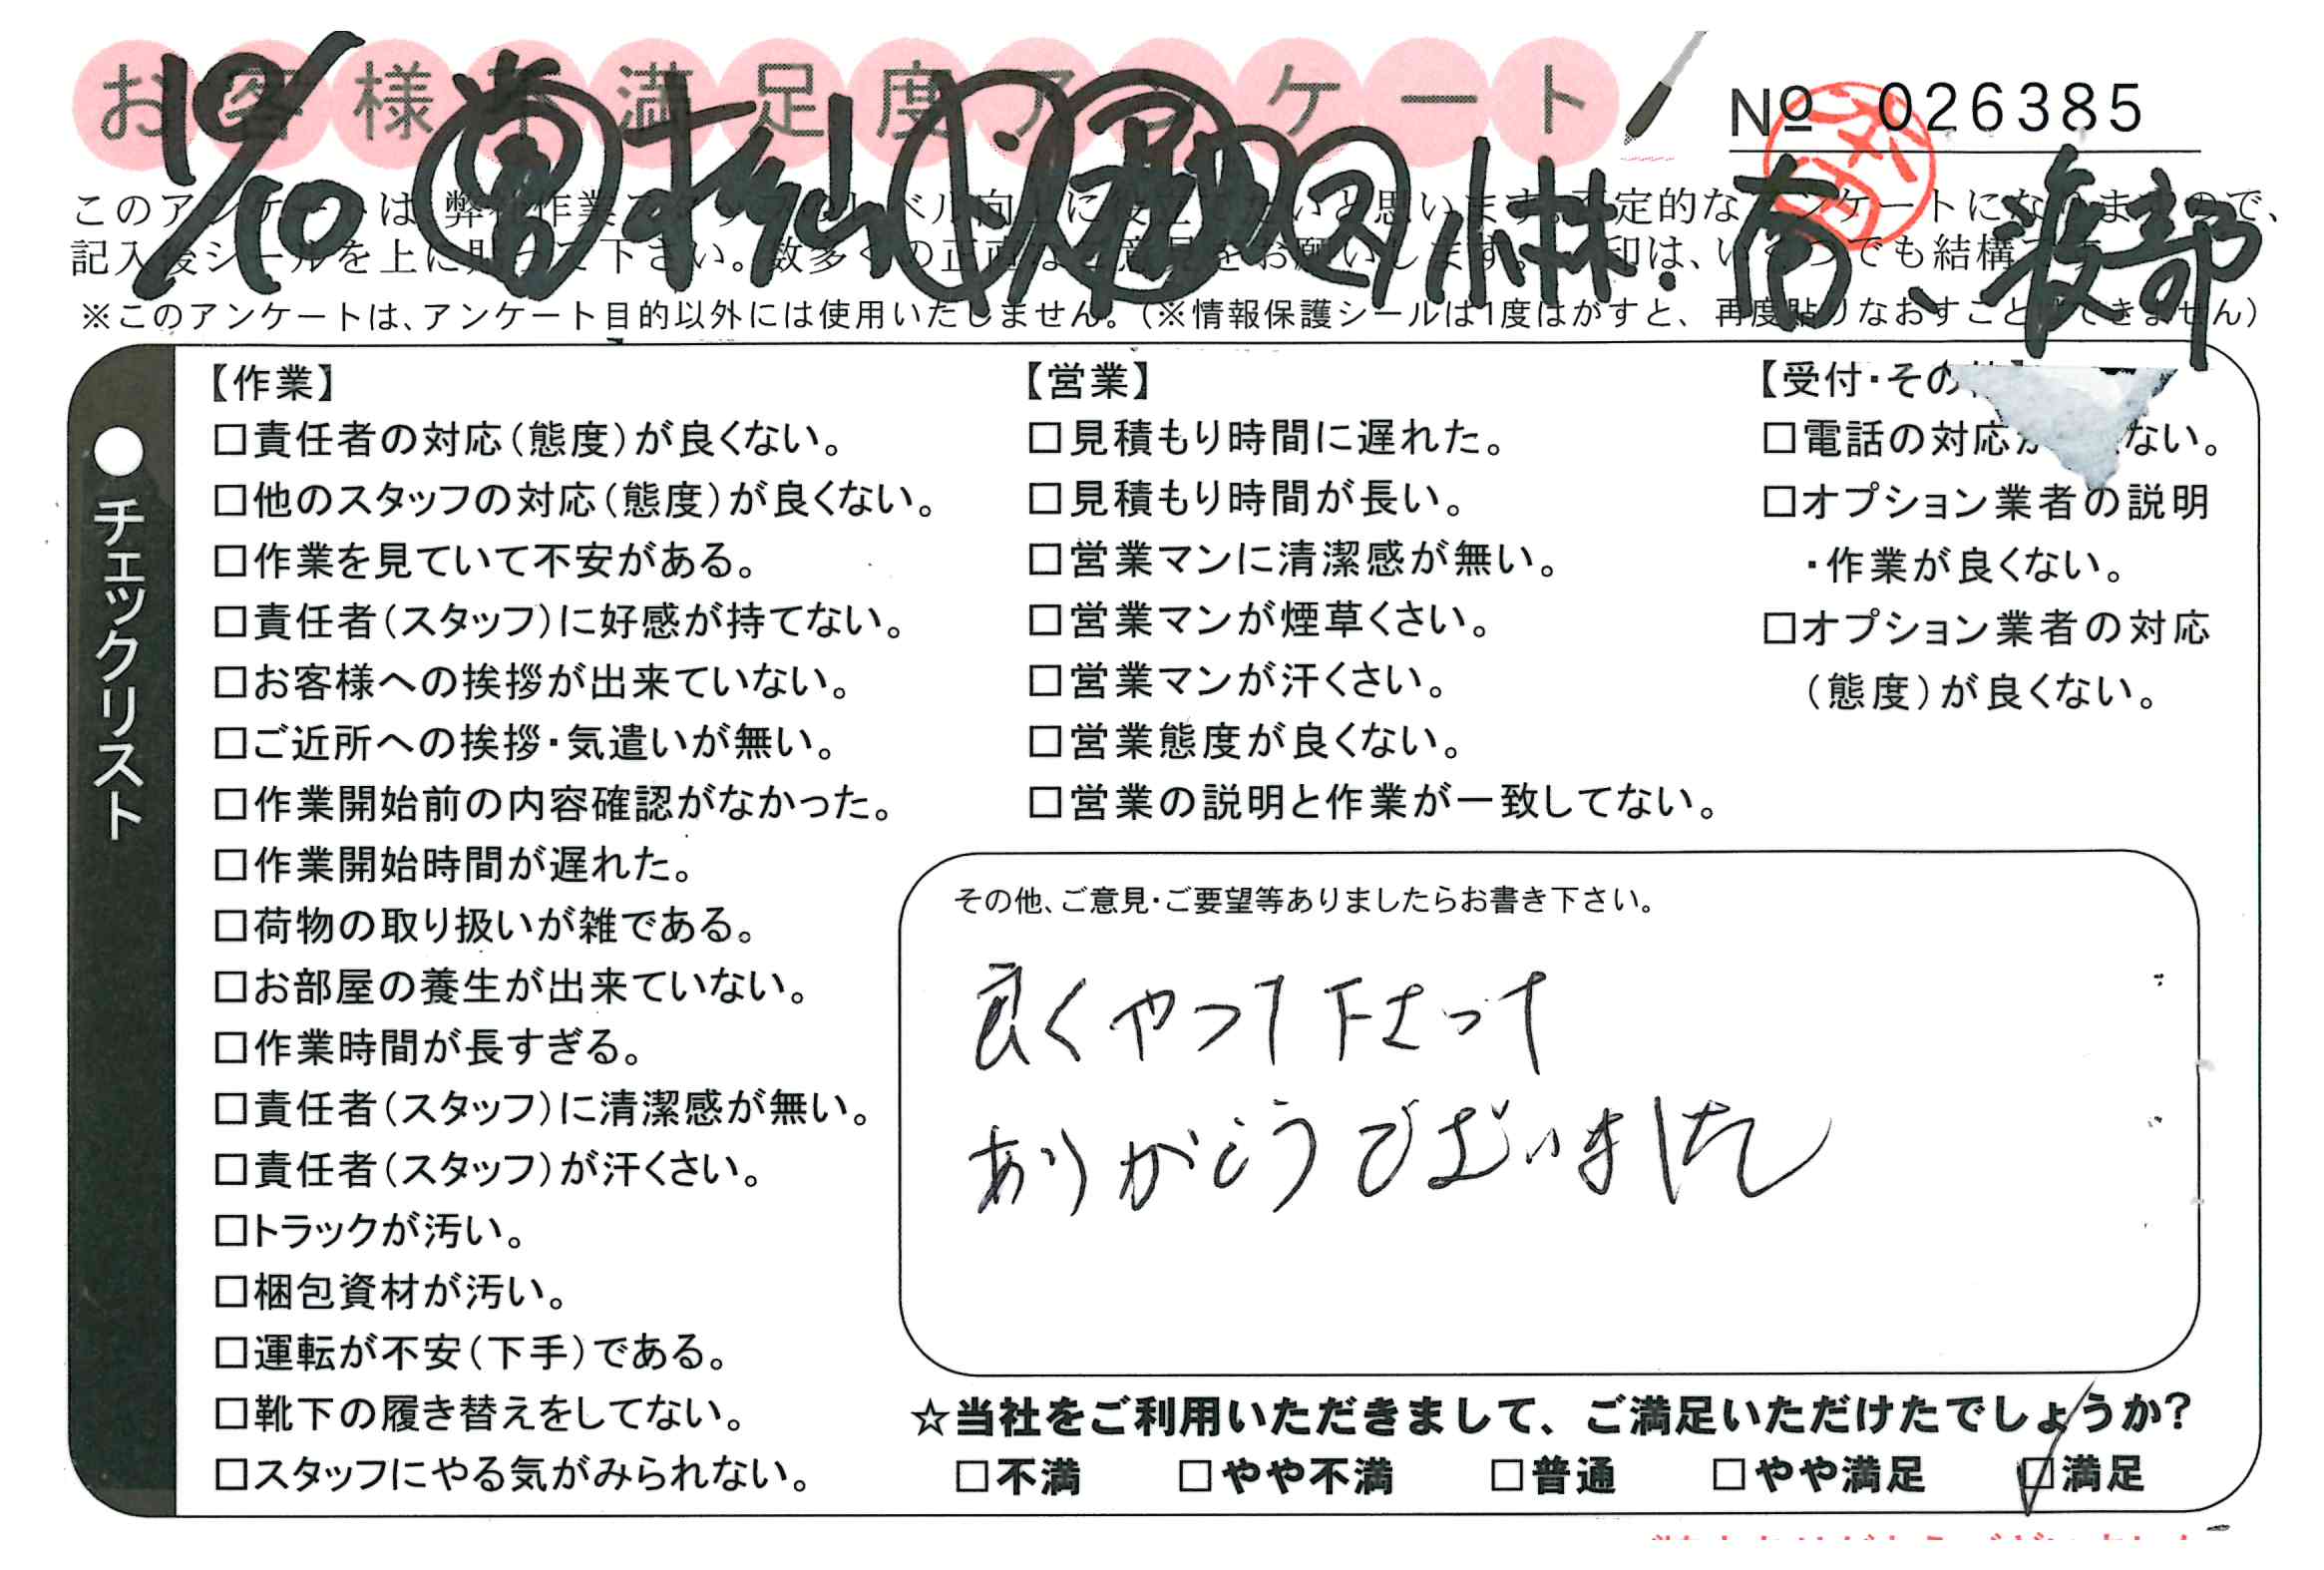 お客様不満足度アンケート
№ 026385
10/10 営 小林.南、渡部
このアンケートは
記入後シールを上に 下さい。数多くの 印は、いくつでも結構
※このアンケートは、アンケート目的以外には使用いたしません。(※情報保護シールは1度はがすと、再度貼りなおすことはできません)
●チェックリスト
【作業】
□責任者の対応(態度)が良くない。
□他のスタッフの対応(態度)が良くない。
□作業を見ていて不安がある。
□責任者(スタッフ)に好感が持てない。
□お客様への挨拶が出来ていない。
□ご近所への挨拶・気遣いが無い。
□作業開始前の内容確認がなかった。
□作業開始時間が遅れた。
□荷物の取り扱いが雑である。
□お部屋の養生が出来ていない。
□作業時間が長すぎる。
□責任者(スタッフ)に清潔感が無い。
□責任者(スタッフ)が汗くさい。
□トラックが汚い。
□梱包資材が汚い。
□運転が不安(下手)である。
□靴下の履き替えをしてない。
□スタッフにやる気がみられない。
【営業】
□見積もり時間に遅れた。
□見積もり時間が長い。
□営業マンに清潔感が無い。
□営業マンが煙草くさい。
□営業マンが汗くさい。
□営業態度が良くない。
□営業の説明と作業が一致してない。
【受付・その
□電話の対応 ない。
□オプション業者の説明
・作業が良くない。
□オプション業者の対応
(態度)が良くない。
その他、ご意見・ご要望等ありましたらお書き下さい。
良くやって下さって
ありがとうございました
☆当社をご利用いただきまして、ご満足いただけたでしょうか?
□不満 □やや不満 □普通 □やや満足 ☑満足